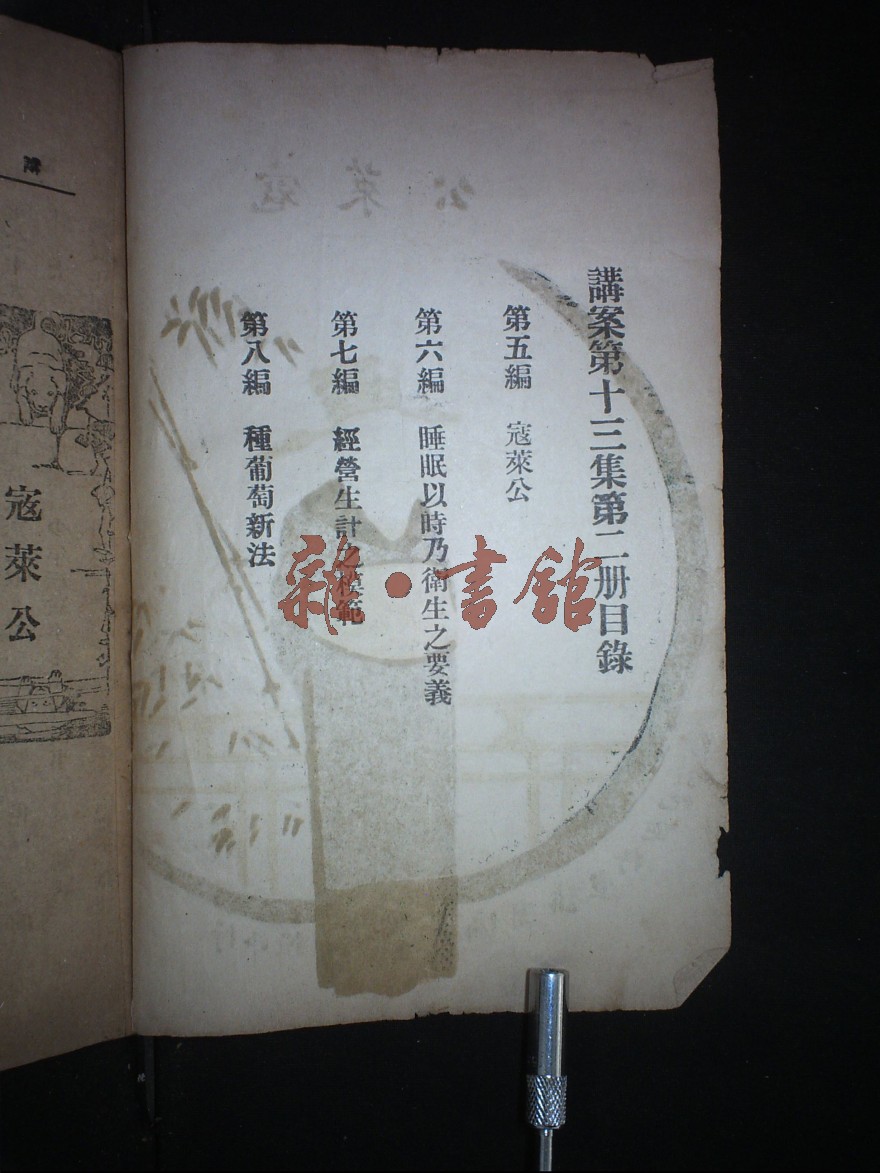 講案第十三集第二册目錄
第五編 寇萊公
第六編 睡眠以時乃衛生之要義
第七編 經營生計之模範
第八編 種葡萄新法
雜·書館
寇萊公
講
寇萊公